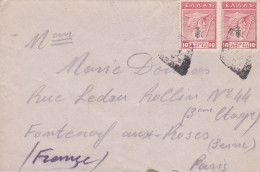 ΕΛΛΑΣ ΕΛΛΑΣ
10 10
Mme
Marie
Rue Ledru Rollin No 44
(3me Etage)
Fontenay aux-Roses
(Seine)
(France)
Paris